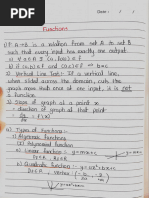 Date : / /
Functions
1) F: A→B is a relation from set A to set B
such that every input has exactly one output.
i) ∀ a∈A ∃ (a, f(a)) ∈ f
ii) (a,b)∈f and (a,c)∈f ⇒ b=c
2) Vertical Line Test:- If a vertical line,
when slided across the domain, cuts the
graph more than once at one input, it is not
a Function.
3) Slope of graph at a point x
= direction of graph at that point
= dy/dx = f'(x)
4) Types of functions:-
1) Algebraic Functions
i) Polynomial Function
a) Linear Function:- y=mx+c
D_f∈R, R_f∈R
b) Quadratic Function:- y=ax²+bx+c
D_f∈R, Vertex